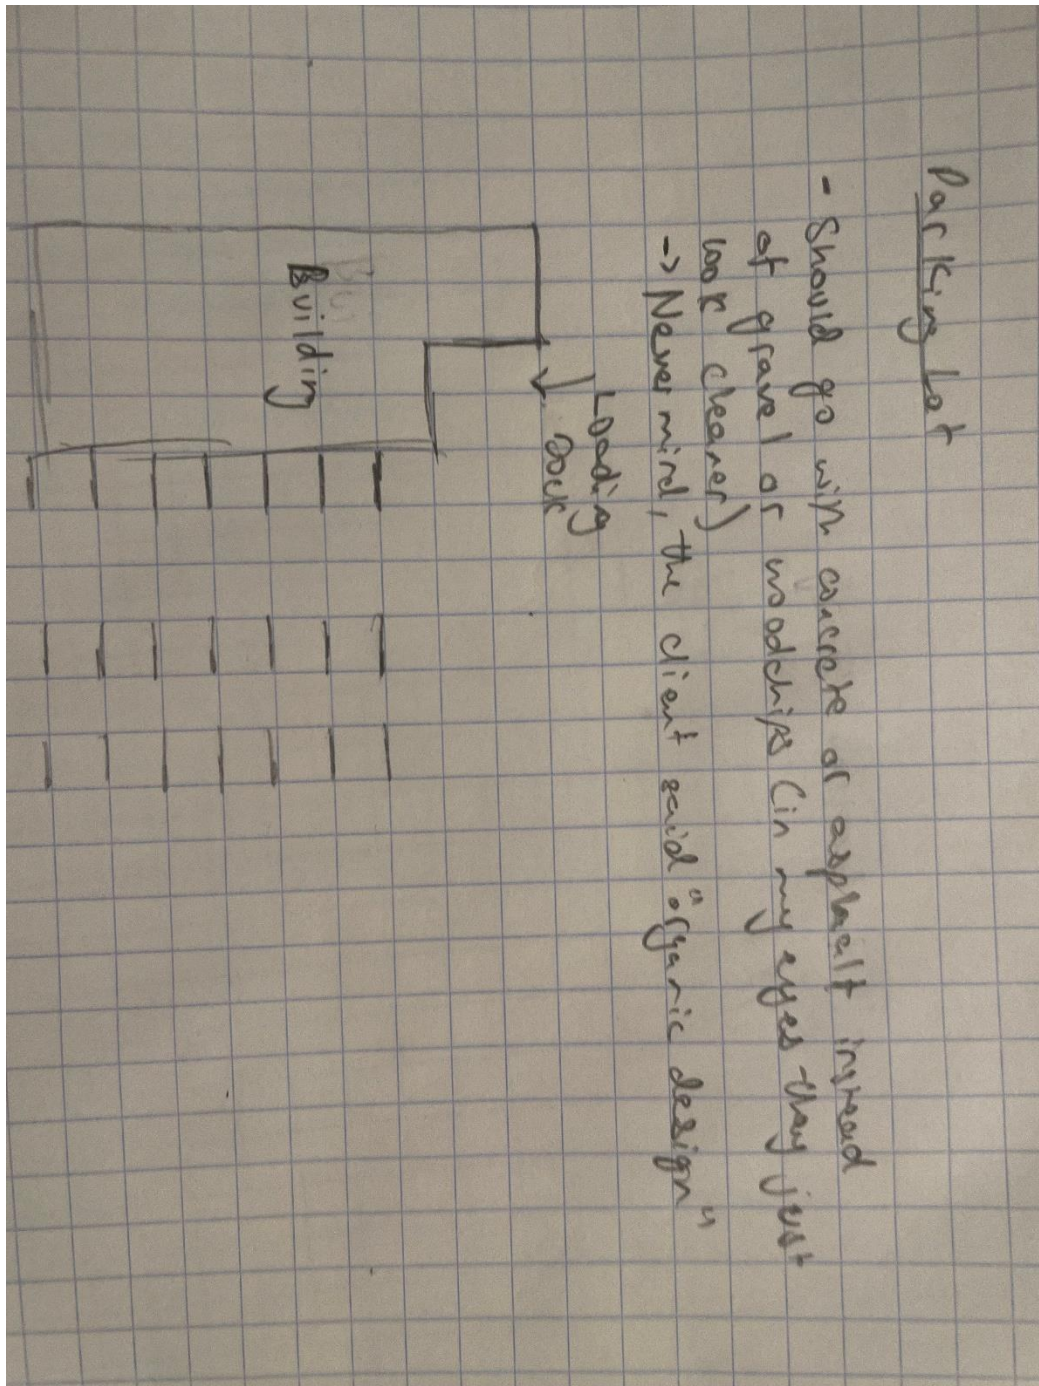 Parking Lot
- Should go with concrete or asphalt instead
of gravel or woodchips (in my eyes they just
look cleaner)
-> Nevermind, the client said "organic design"
Loading
Dock
Building